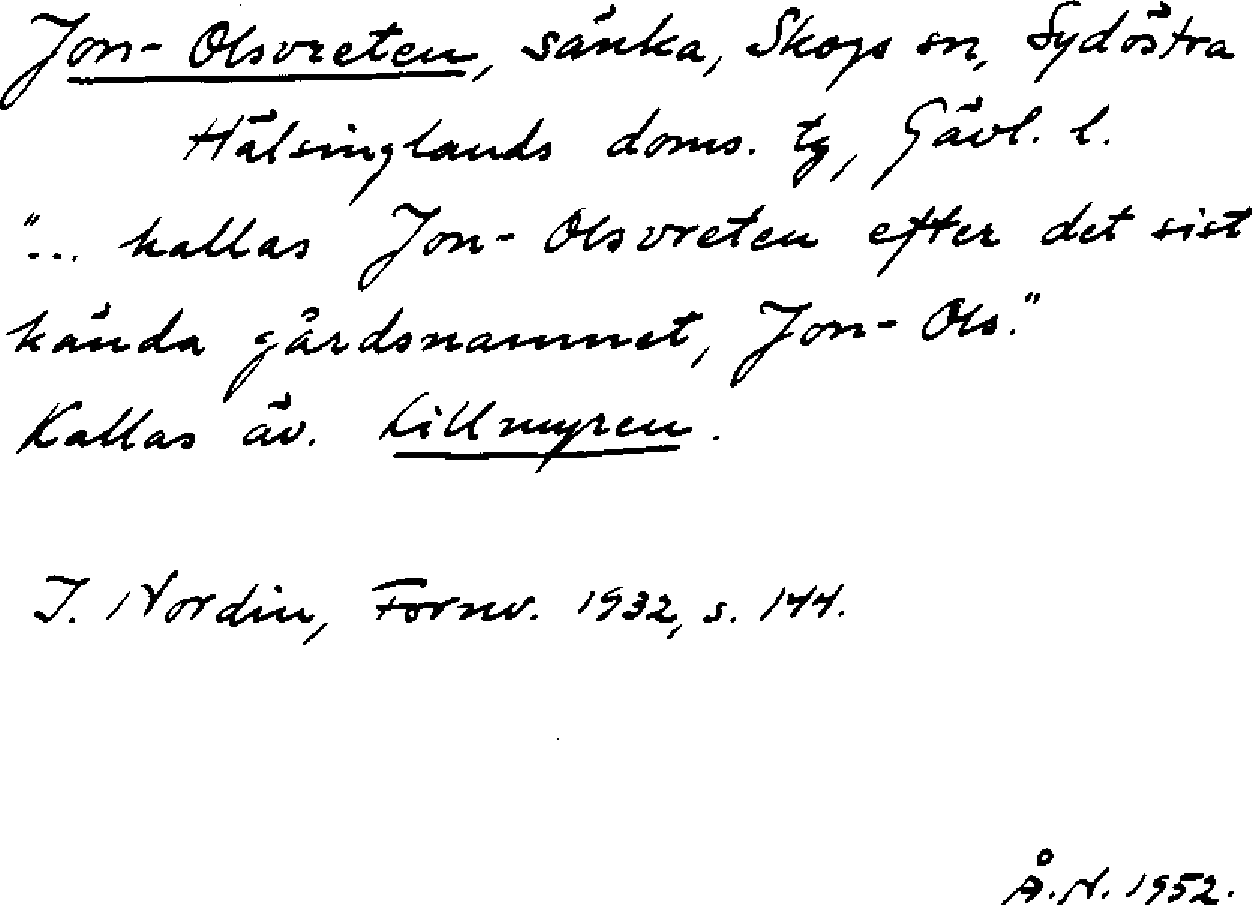 Jon-Olsvreten, sänka, Skogs sn, Sydöstra
Hälsinglands doms. tg, Gävl. l.
"... kallas Jon-Olsvreten efter det sist
kända gårdsnamnet, Jon-Ols."
Kallas äv. Lillmyren.
I. Nordin, Fornv. 1932, s. 144.
Å.N. 1952.